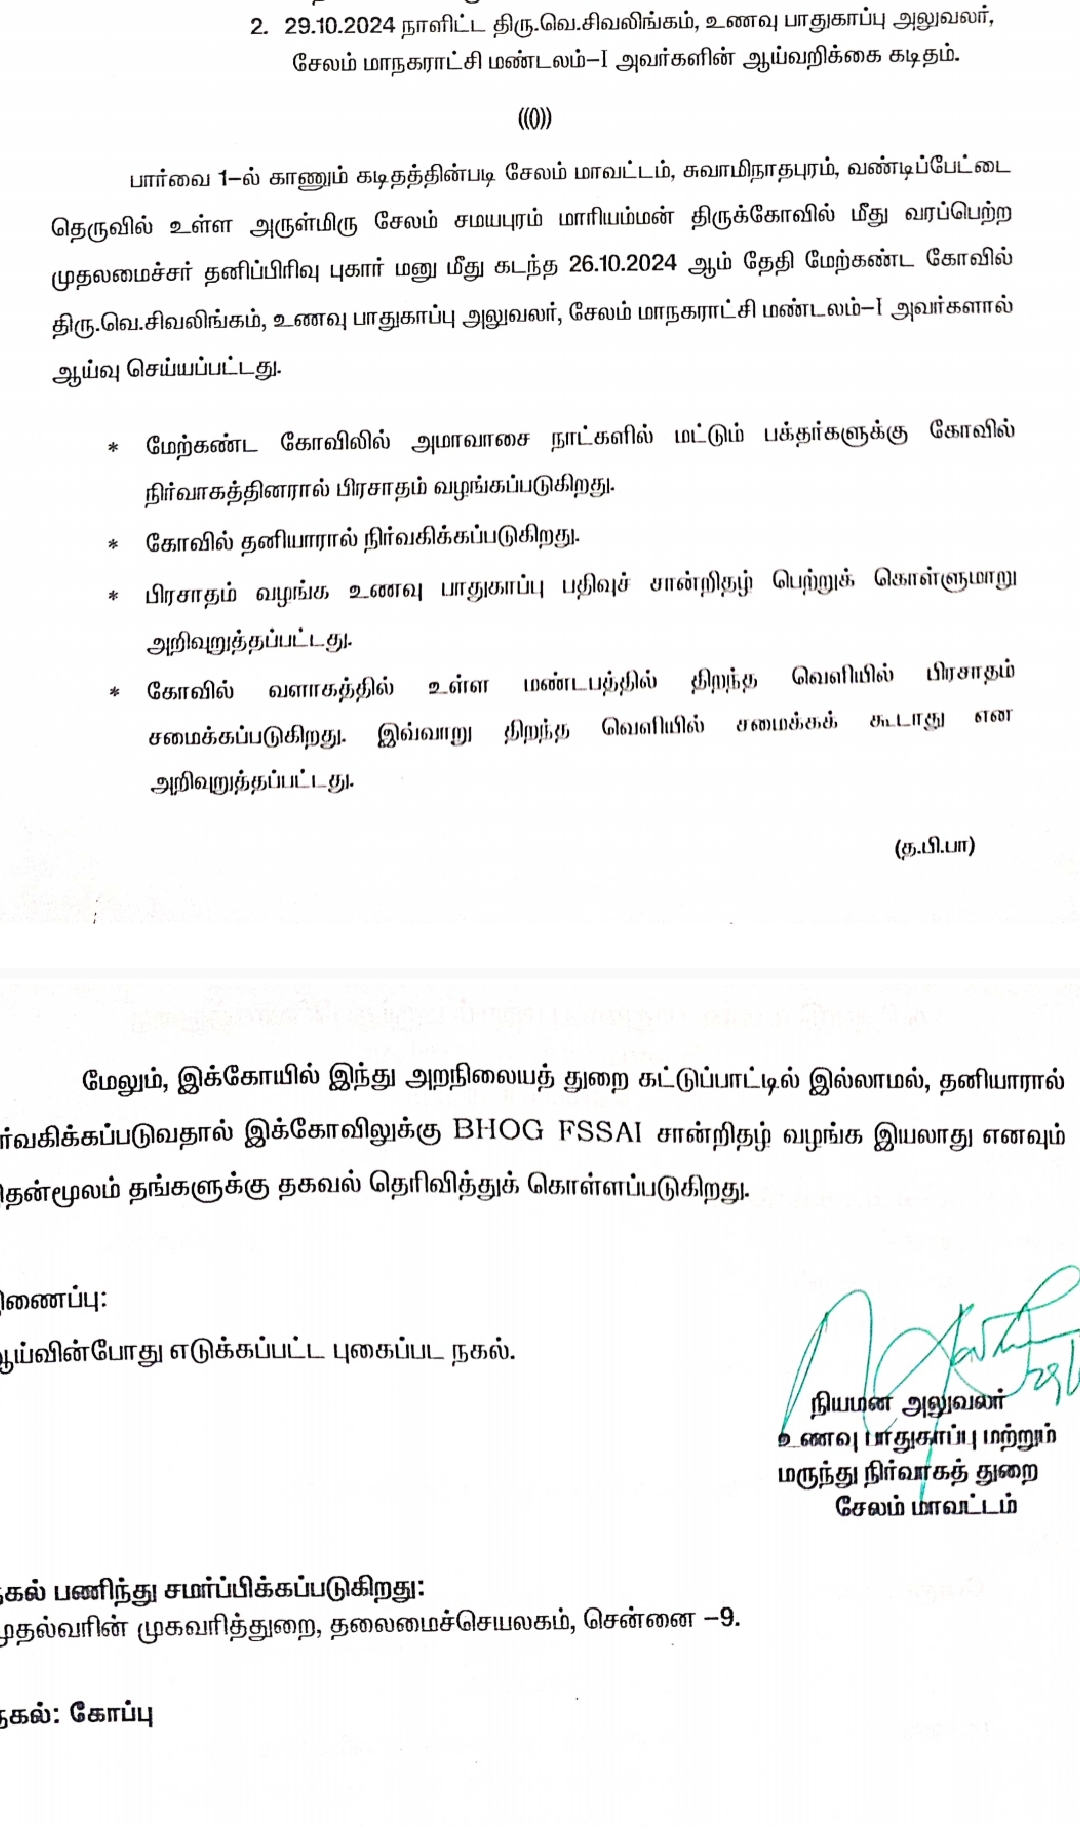 2. 29.10.2024 நாளிட்ட திரு.வெ.சிவலிங்கம், உணவு பாதுகாப்பு அலுவலர்,
சேலம் மாநகராட்சி மண்டலம்–I அவர்களின் ஆய்வறிக்கை கடிதம்.
((0))
பார்வை 1–ல் காணும் கடிதத்தின்படி சேலம் மாவட்டம், சுவாமிநாதபுரம், வண்டிப்பேட்டை
தெருவில் உள்ள அருள்மிரு சேலம் சமயபுரம் மாரியம்மன் திருக்கோவில் மீது வரப்பெற்ற
முதலமைச்சர் தனிப்பிரிவு புகார் மனு மீது கடந்த 26.10.2024 ஆம் தேதி மேற்கண்ட கோவில்
திரு.வெ.சிவலிங்கம், உணவு பாதுகாப்பு அலுவலர், சேலம் மாநகராட்சி மண்டலம்–I அவர்களால்
ஆய்வு செய்யப்பட்டது.
* மேற்கண்ட கோவிலில் அமாவாசை நாட்களில் மட்டும் பக்தர்களுக்கு கோவில்
நிர்வாகத்தினரால் பிரசாதம் வழங்கப்படுகிறது.
* கோவில் தனியாரால் நிர்வகிக்கப்படுகிறது.
* பிரசாதம் வழங்க உணவு பாதுகாப்பு பதிவுச் சான்றிதழ் பெற்றுக் கொள்ளுமாறு
அறிவுறுத்தப்பட்டது.
* கோவில் வளாகத்தில் உள்ள மண்டபத்தில் திறந்த வெளியில் பிரசாதம்
சமைக்கப்படுகிறது. இவ்வாறு திறந்த வெளியில் சமைக்கக் கூடாது என
அறிவுறுத்தப்பட்டது.
(த.பி.பா)
மேலும், இக்கோயில் இந்து அறநிலையத் துறை கட்டுப்பாட்டில் இல்லாமல், தனியாரால்
ர்வகிக்கப்படுவதால் இக்கோவிலுக்கு BHOG FSSAI சான்றிதழ் வழங்க இயலாது எனவும்
தன்மூலம் தங்களுக்கு தகவல் தெரிவித்துக் கொள்ளப்படுகிறது.
ணைப்பு:
ஆய்வின்போது எடுக்கப்பட்ட புகைப்பட நகல்.
நியமன அலுவலர்
உணவு பாதுகாப்பு மற்றும்
மருந்து நிர்வாகத் துறை
சேலம் மாவட்டம்
நகல் பணிந்து சமர்ப்பிக்கப்படுகிறது:
முதல்வரின் முகவரித்துறை, தலைமைச்செயலகம், சென்னை –9.
நகல்: கோப்பு